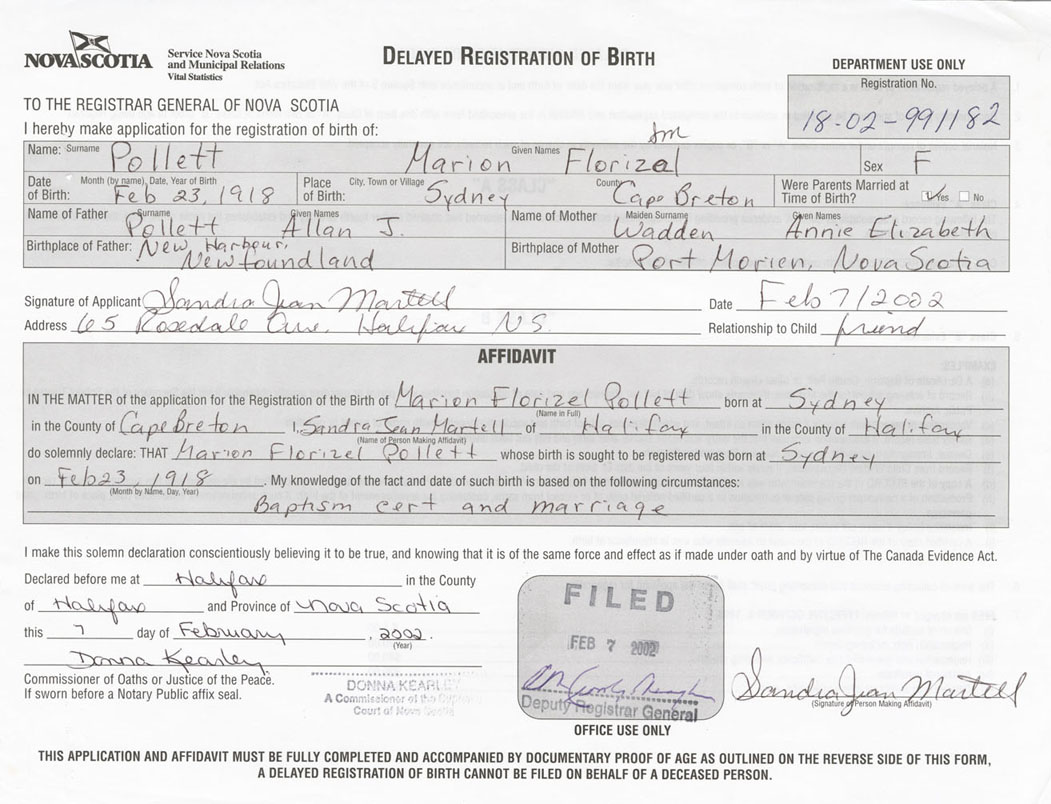 NOVA SCOTIA
Service Nova Scotia
and Municipal Relations
Vital Statistics
DELAYED REGISTRATION OF BIRTH
DEPARTMENT USE ONLY
Registration No.
18-02-991182
TO THE REGISTRAR GENERAL OF NOVA SCOTIA
I hereby make application for the registration of birth of:
Jm
Name: Surname Pollett Given Names Marion Florizel Sex F
Date of Birth: Month (by name), Date, Year of Birth Feb 23, 1918 Place of Birth: City, Town or Village Sydney County Cape Breton Were Parents Married at Time of Birth? Yes No
Name of Father Surname Pollett Given Names Allan J. Name of Mother Maiden Surname Wadden Given Names Annie Elizabeth
Birthplace of Father: New Harbour, Newfoundland Birthplace of Mother Port Morien, Nova Scotia
Signature of Applicant Sandra Jean Martell Date Feb 7/2002
Address 65 Rosedale Ave. Halifax N.S. Relationship to Child friend
AFFIDAVIT
IN THE MATTER of the application for the Registration of the Birth of Marion Florizel Pollett born at Sydney
(Name in Full)
in the County of Cape Breton I, Sandra Jean Martell of Halifax in the County of Halifax
(Name of Person Making Affidavit)
do solemnly declare: THAT Marion Florizel Pollett whose birth is sought to be registered was born at Sydney
on Feb 23, 1918. My knowledge of the fact and date of such birth is based on the following circumstances:
(Month by Name, Day, Year)
Baptism cert and marriage
I make this solemn declaration conscientiously believing it to be true, and knowing that it is of the same force and effect as if made under oath and by virtue of The Canada Evidence Act.
Declared before me at Halifax in the County
of Halifax and Province of Nova Scotia
this 7 day of February, 2002.
(Year)
Donna Kearley
Commissioner of Oaths or Justice of the Peace.
If sworn before a Notary Public affix seal.
DONNA KEARLEY
A Commissioner of the Supreme
Court of Nova Scotia
FILED
FEB 7 2002
Deputy Registrar General
OFFICE USE ONLY
Sandra Jean Martell
(Signature of Person Making Affidavit)
THIS APPLICATION AND AFFIDAVIT MUST BE FULLY COMPLETED AND ACCOMPANIED BY DOCUMENTARY PROOF OF AGE AS OUTLINED ON THE REVERSE SIDE OF THIS FORM,
A DELAYED REGISTRATION OF BIRTH CANNOT BE FILED ON BEHALF OF A DECEASED PERSON.